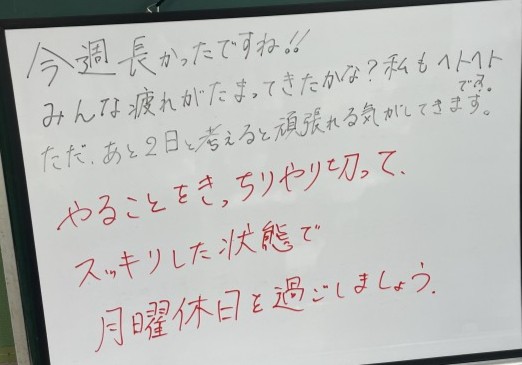 今週長かったですね!!
みんな疲れがたまってきたかな?私もヘトヘト
です。
ただ、あと2日と考えると頑張れる気がしてきます。
やることをきっちりやり切って、
スッキリした状態で
月曜休日を過ごしましょう。